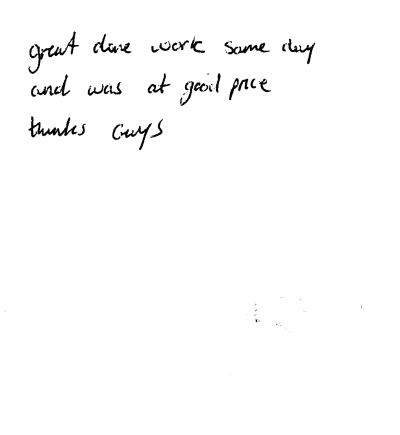 great done work same day
and was at good price
thanks Guys